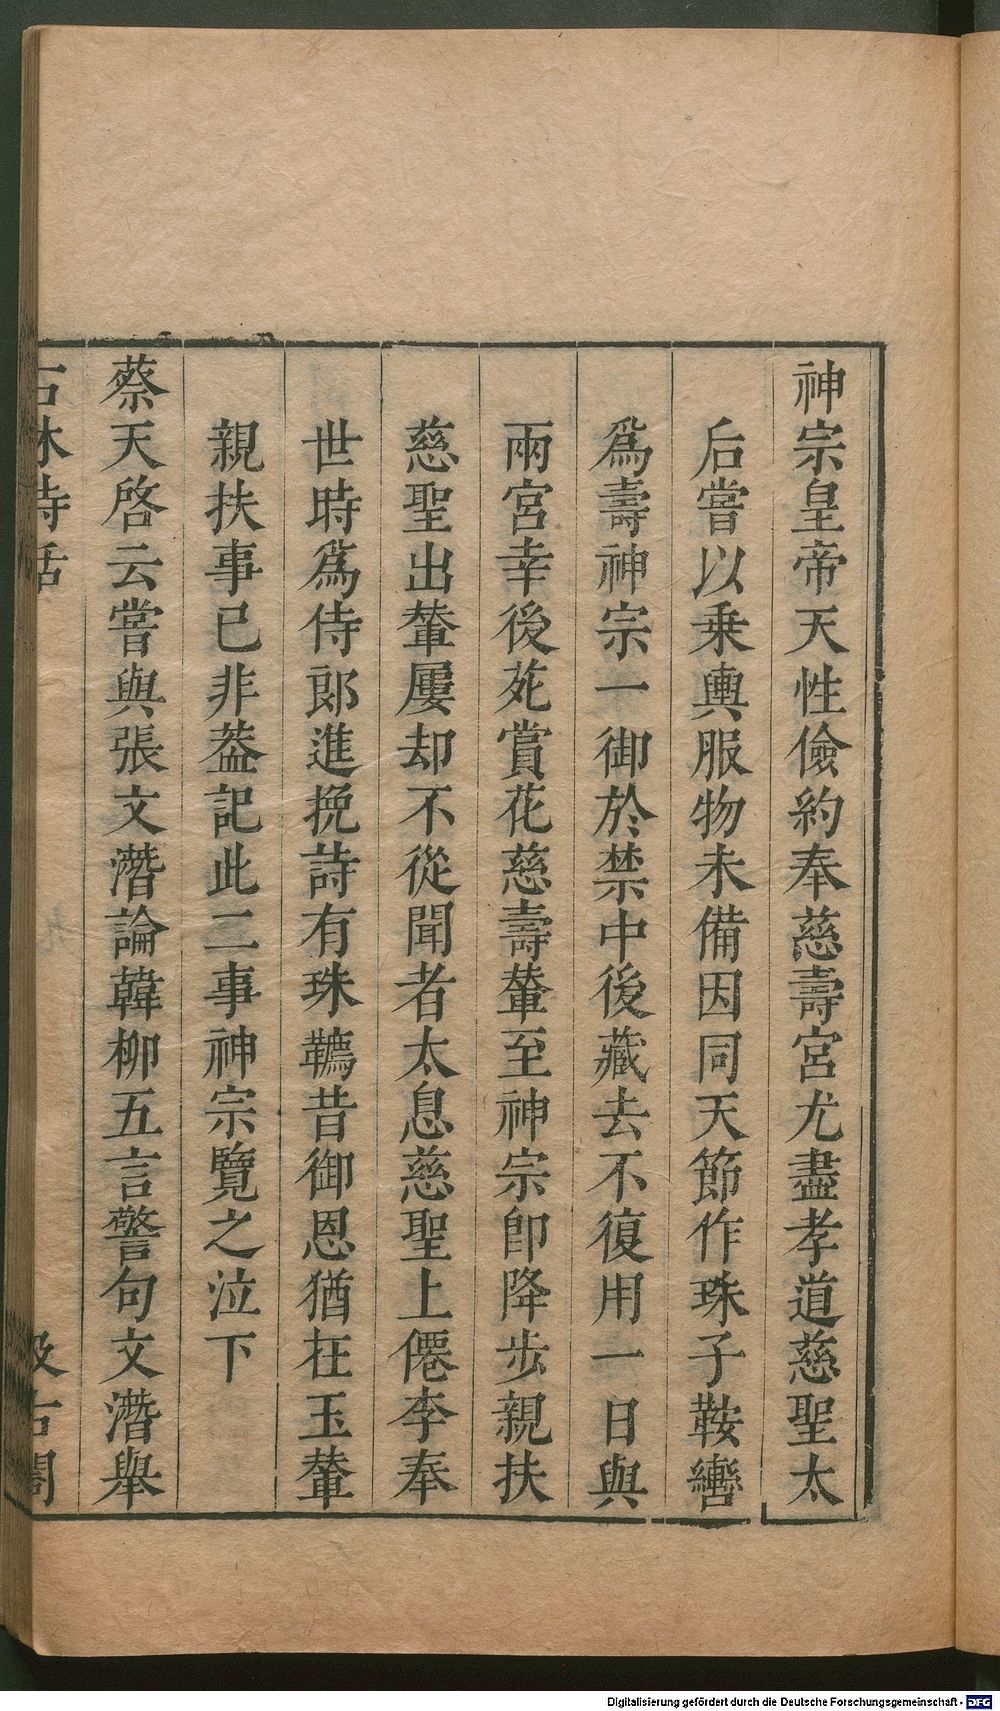 神宗皇帝天性儉約奉慈壽宮尤盡孝道慈聖太
后嘗以乗輿服物未備因同天節作珠子鞍轡
爲壽神宗一御於禁中後藏去不復用一日與
兩宮幸後苑賞花慈壽輦至神宗卽降步親扶
慈聖出輦屢却不從聞者太息慈聖上僊李奉
世時爲侍郎進挽詩有珠韉昔御恩猶在玉輦
親扶事已非葢記此二事神宗覽之泣下
蔡天啓云嘗與張文潛論韓柳五言警句文潛舉
石林詩話
汲古閣
Digitalisierung gefördert durch die Deutsche Forschungsgemeinschaft - DFG